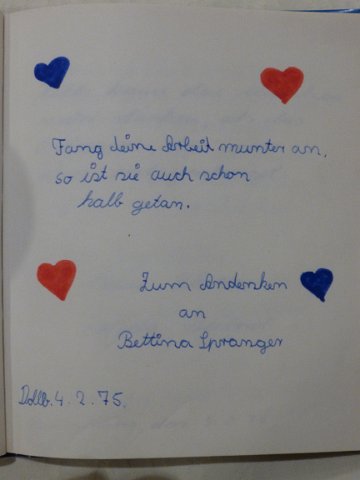 Fang deine Arbeit munter an,
so ist sie auch schon
halb getan.
Zum Andenken
an
Bettina Spranger
Dollb. 4. 2. 75.